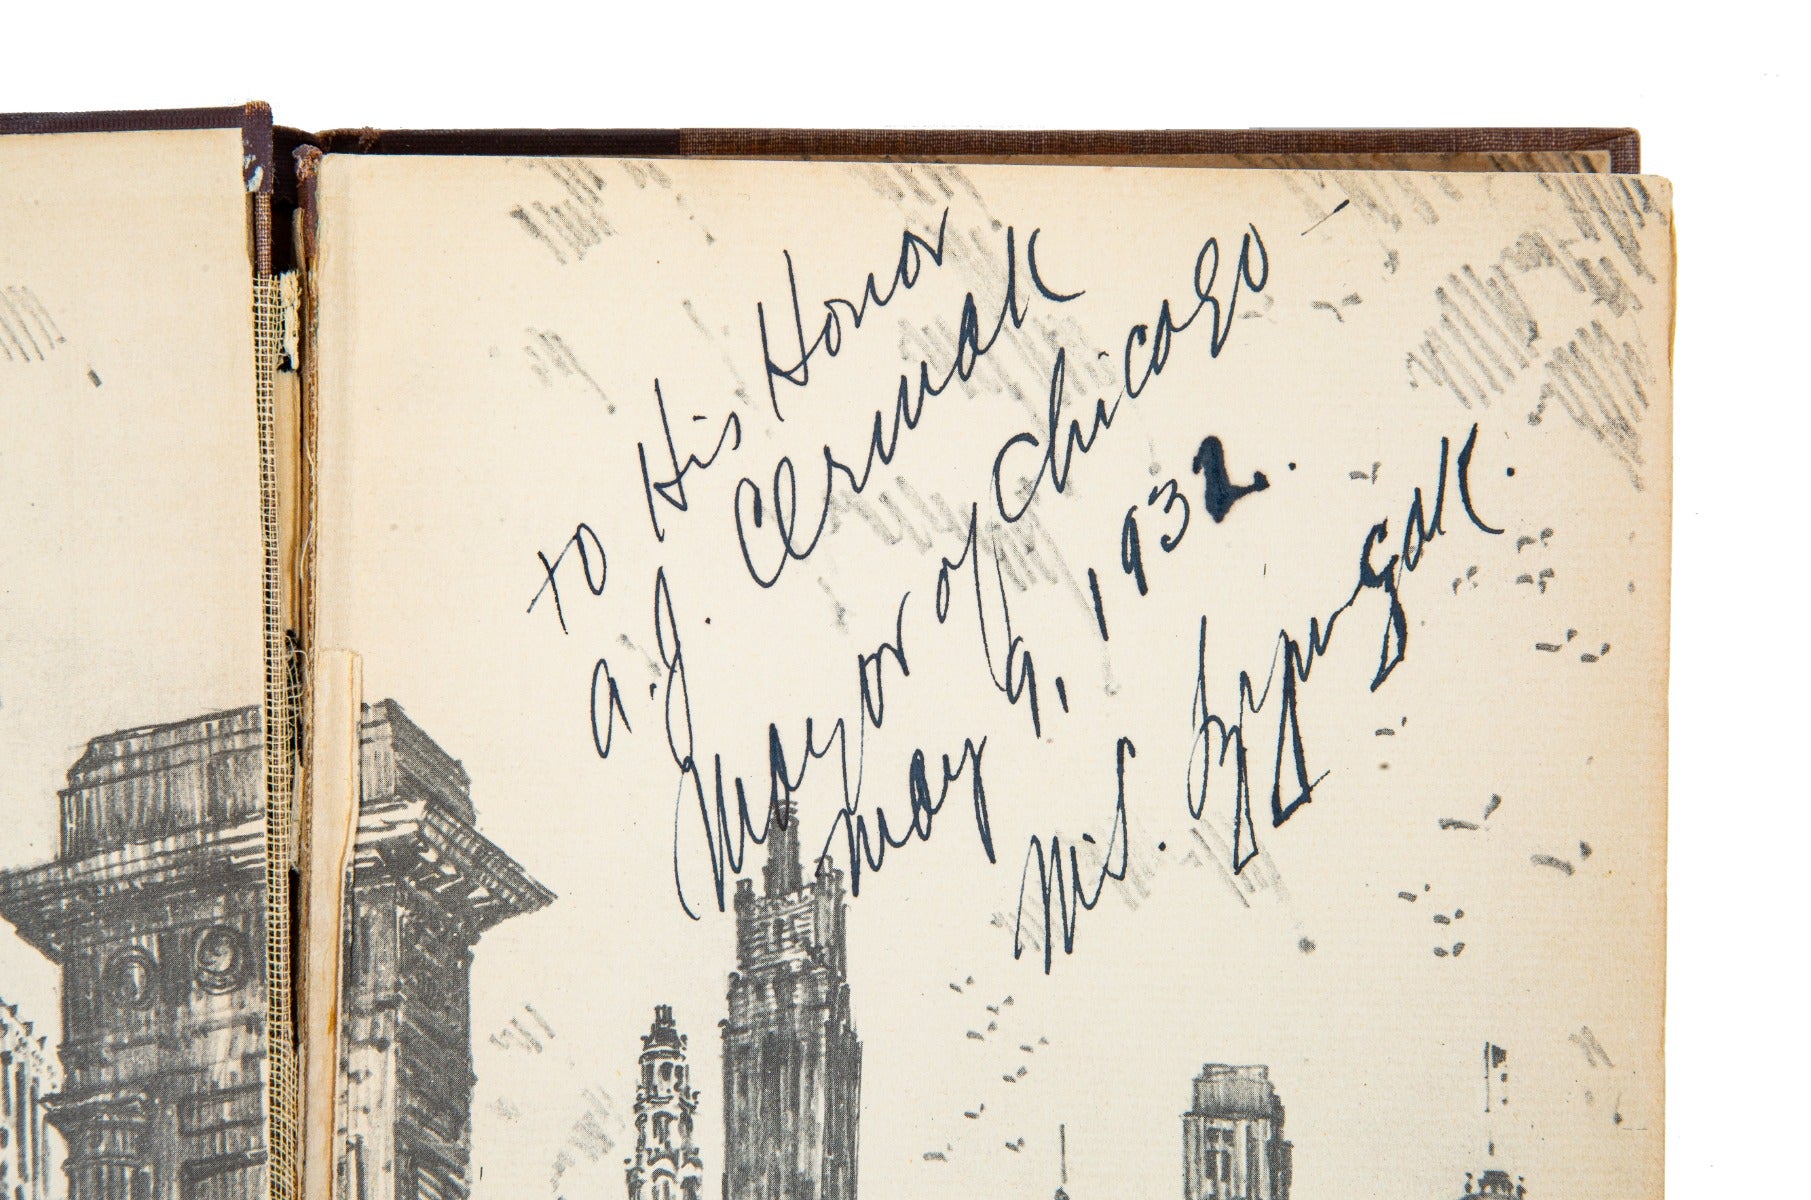 to His Honor
A.J. Cermak
Mayor of Chicago –
May 9, 1932.
M.S. Szymczak.